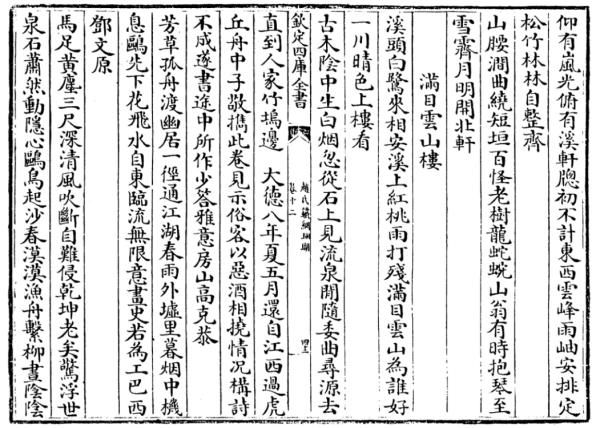 仰有嵐光俯有溪軒牕初不計東西雲峰雨岫安排定
松竹林林自整齊
山腰澗曲繞短垣百怪老樹龍蛇蜿山翁有時抱琴至
雪霽月明開北軒
滿目雲山樓
溪頭白鷺來相安溪上紅桃雨打殘滿目雲山為誰好
一川晴色上樓看
古木陰中生白烟忽從石上見流泉閒隨委曲尋源去
欽定四庫全書
趙氏鐵網珊瑚
卷十二
四三
直到人家竹塢邊 大德八年夏五月還自江西過虎
丘舟中子敬攜此卷見示俗客以惡酒相撓情況構詩
不成遂書途中所作少答雅意房山高克恭
芳草孤舟渡幽居一徑通江湖春雨外墟里暮烟中機
息鷗先下花飛水自東臨流無限意畫史若為工巴西
鄧文原
馬足黄塵三尺深清風吹斷自難侵乾坤老矣驚浮世
泉石蕭然動隱心鷗鳥起沙春漠漠漁舟繫柳晝陰陰